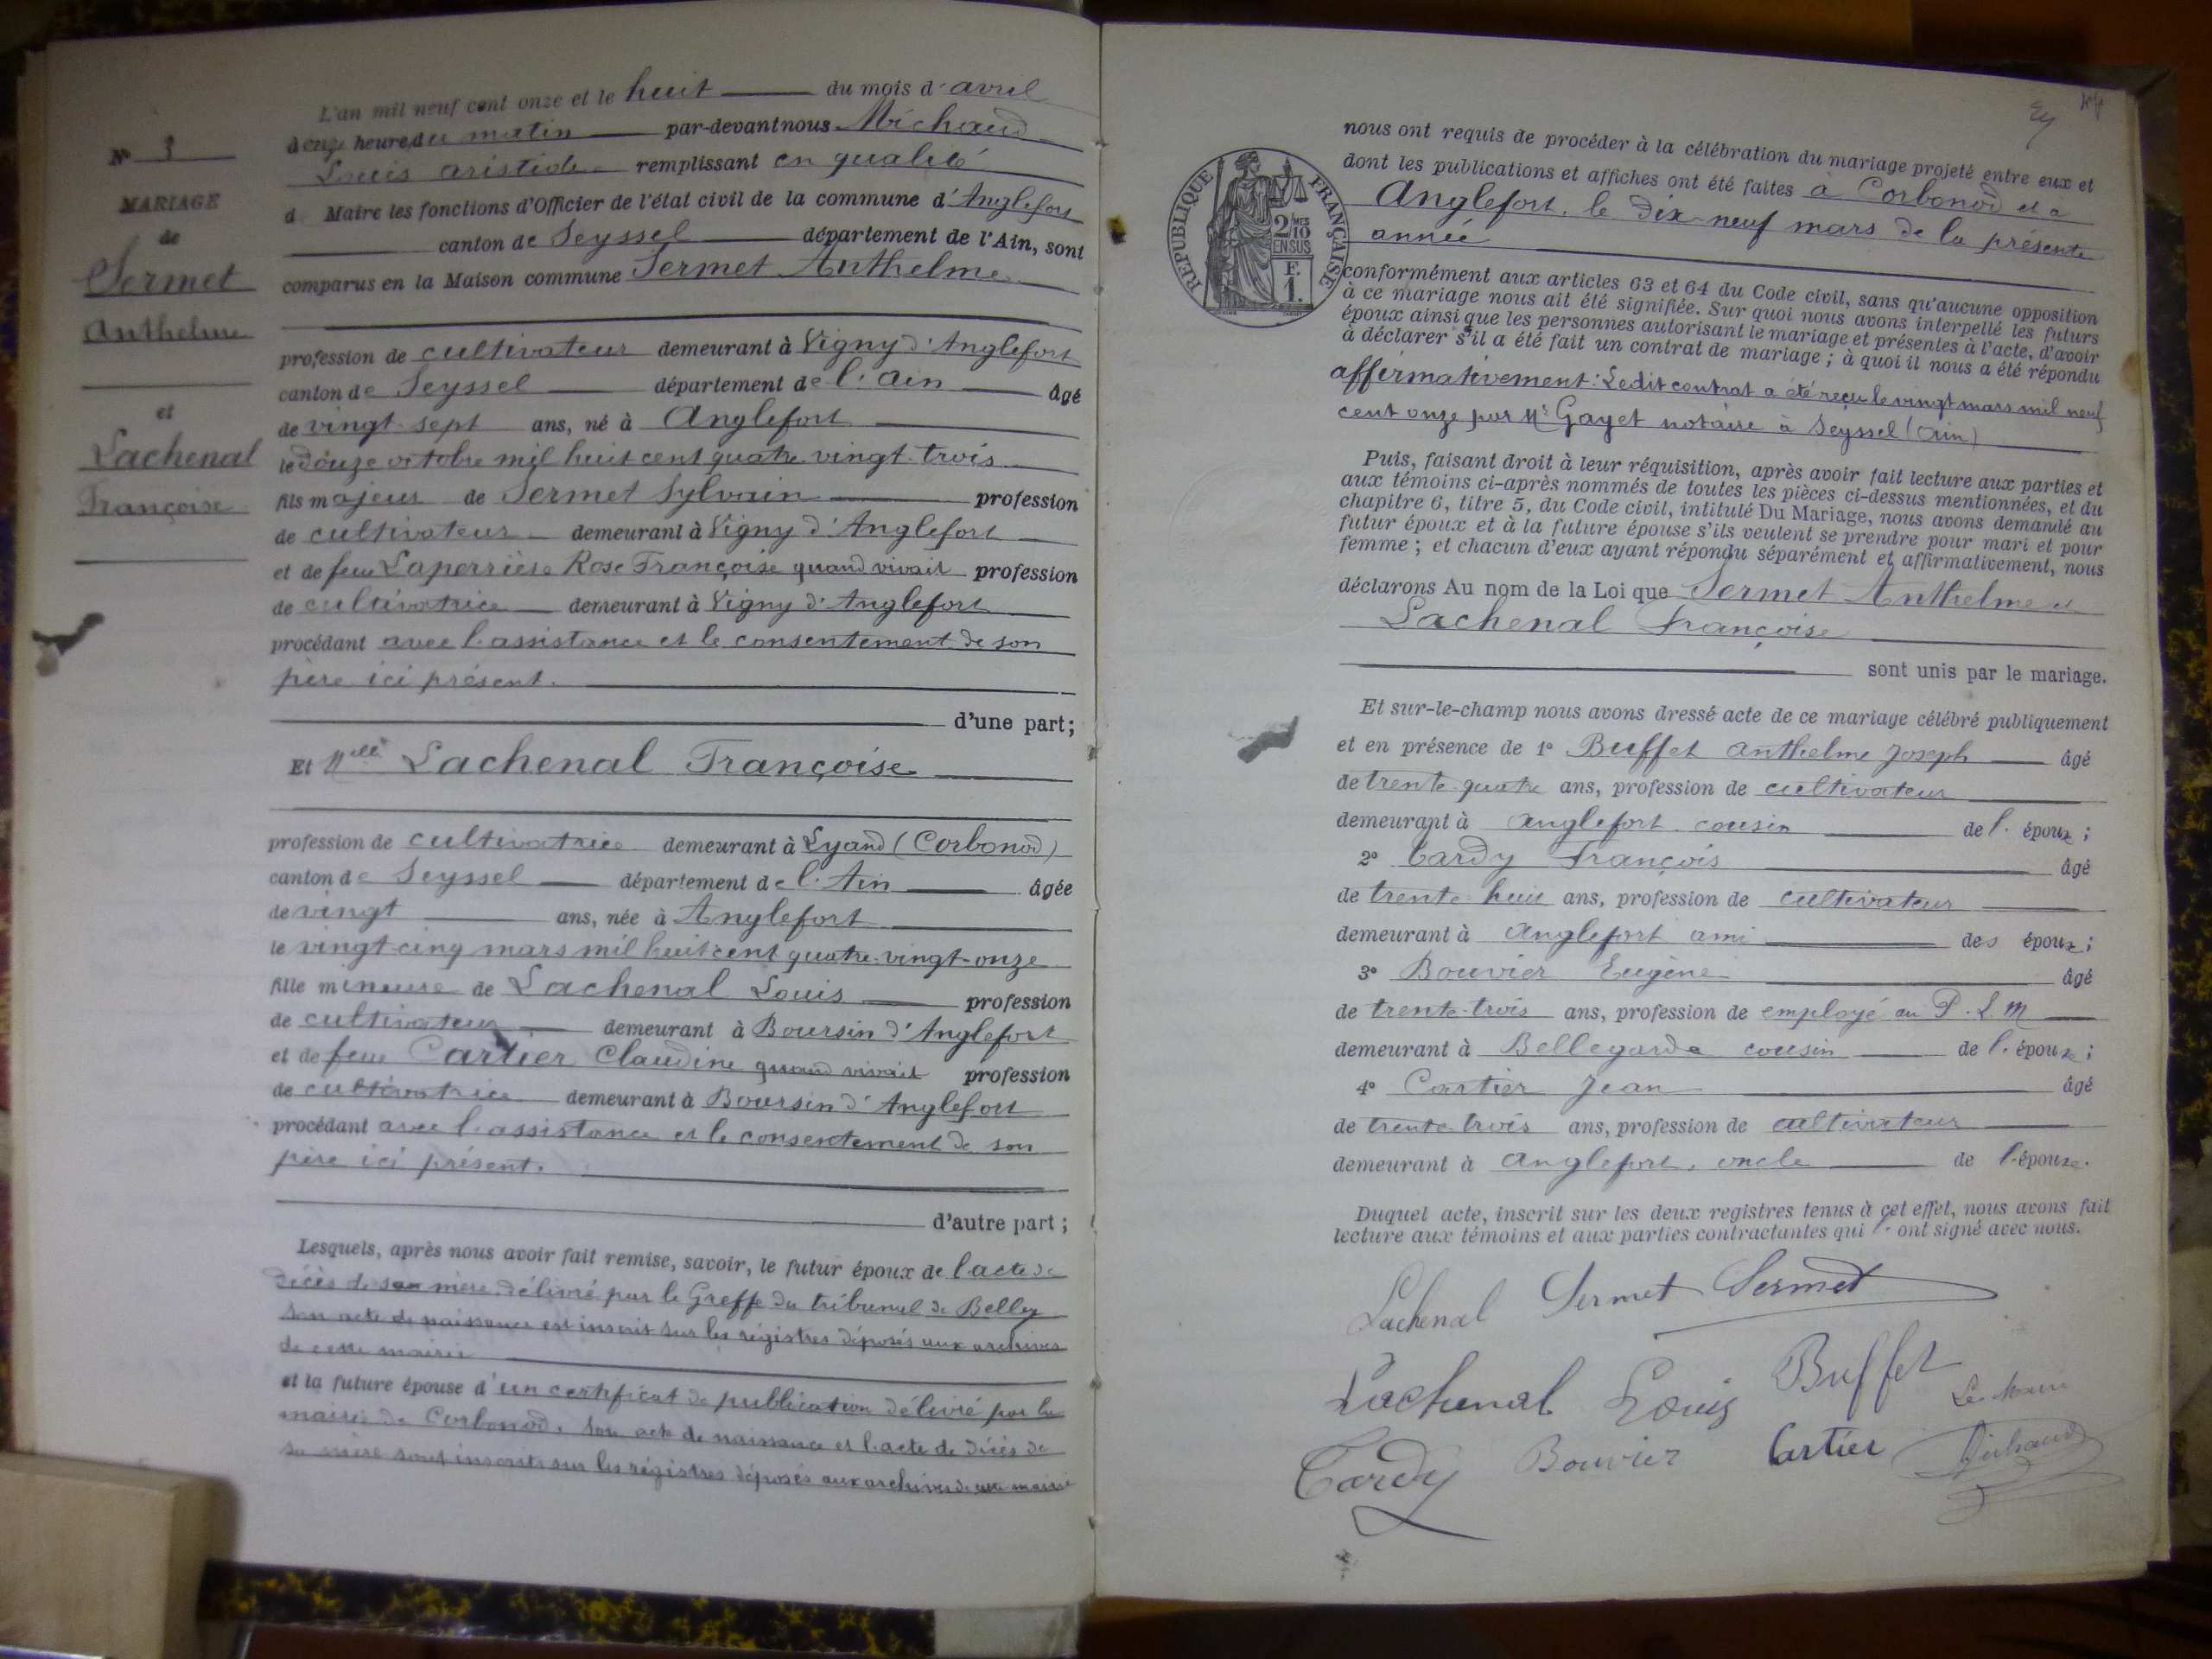 L'an mil neuf cent onze et le huit du mois d'avril
à onze heures du matin par-devant nous Michaud
Louis aristide remplissant en qualité
d Maire les fonctions d'Officier de l'état civil de la commune d'Anglefort
canton de Seyssel département de l'Ain, sont
comparus en la Maison commune Sermet Anthelme
N° 3
MARIAGE
de
Sermet
Anthelme
et
Lachenal
Françoise
profession de cultivateur demeurant à Vigny d'Anglefort
canton de Seyssel département de l'Ain âgé
de vingt-sept ans, né à Anglefort
le douze octobre mil huit cent quatre vingt trois
fils majeur de Sermet Sylvain profession
de cultivateur demeurant à Vigny d'Anglefort
et de feue Laperrière Rose Françoise quand vivait profession
de cultivatrice demeurant à Vigny d'Anglefort
procédant avec l'assistance et le consentement de son
père ici présent.
d'une part;
Et Melle Lachenal Françoise
profession de cultivatrice demeurant à Lyand (Corbonod)
canton de Seyssel département de l'Ain âgée
de vingt ans, née à Anglefort
le vingt-cinq mars mil huit cent quatre-vingt-onze
fille mineure de Lachenal Louis profession
de cultivateur demeurant à Boursin d'Anglefort
et de feue Cartier Claudine quand vivait profession
de cultivatrice demeurant à Boursin d'Anglefort
procédant avec l'assistance et le consentement de son
père ici présent.
d'autre part;
Lesquels, après nous avoir fait remise, savoir, le futur époux de l'acte de
décès de sa mère, délivré par le Greffe du tribunal de Belley
Son acte de naissance est inscrit sur les régistres déposés aux archives
de cette mairie
et la future épouse d'un certificat de publication délivré par la
mairie de Corbonod. Son acte de naissance et l'acte de décès de
sa mère sont inscrits sur les régistres déposés aux archives de cette mairie
nous ont requis de procéder à la célébration du mariage projeté entre eux et
dont les publications et affiches ont été faites à Corbonod et à
Anglefort, le dix-neuf mars de la présente
année
REPUBLIQUE FRANÇAISE
2/10 MES
EN SUS
F.
1.
conformément aux articles 63 et 64 du Code civil, sans qu'aucune opposition
à ce mariage nous ait été signifiée. Sur quoi nous avons interpellé les futurs
époux ainsi que les personnes autorisant le mariage et présentes à l'acte, d'avoir
à déclarer s'il a été fait un contrat de mariage; à quoi il nous a été répondu
affirmativement: Ledit contrat a été reçu le vingt mars mil neuf
cent onze par Me Gayet notaire à Seyssel (Ain)
Puis, faisant droit à leur réquisition, après avoir fait lecture aux parties et
aux témoins ci-après nommés de toutes les pièces ci-dessus mentionnées, et du
chapitre 6, titre 5, du Code civil, intitulé Du Mariage, nous avons demandé au
futur époux et à la future épouse s'ils veulent se prendre pour mari et pour
femme; et chacun d'eux ayant répondu séparément et affirmativement, nous
déclarons Au nom de la Loi que Sermet Anthelme et
Lachenal Françoise
sont unis par le mariage.
Et sur-le-champ nous avons dressé acte de ce mariage célébré publiquement
et en présence de 1° Buffet anthelme Joseph âgé
de trente quatre ans, profession de cultivateur
demeurant à anglefort cousin de l'époux;
2° Tardy François âgé
de trente huit ans, profession de cultivateur
demeurant à anglefort ami des époux;
3° Bouvier Eugène âgé
de trente-trois ans, profession de employé au P.L.M
demeurant à Bellegarde cousin de l'épouse;
4° Cartier Jean âgé
de trente trois ans, profession de cultivateur
demeurant à anglefort, oncle de l'épouse.
Duquel acte, inscrit sur les deux registres tenus à cet effet, nous avons fait
lecture aux témoins et aux parties contractantes qui l' ont signé avec nous.
Lachenal Sermet Sermet
Lachenal Louis Buffet
Le Maire
Tardy Bouvier Cartier Michaud